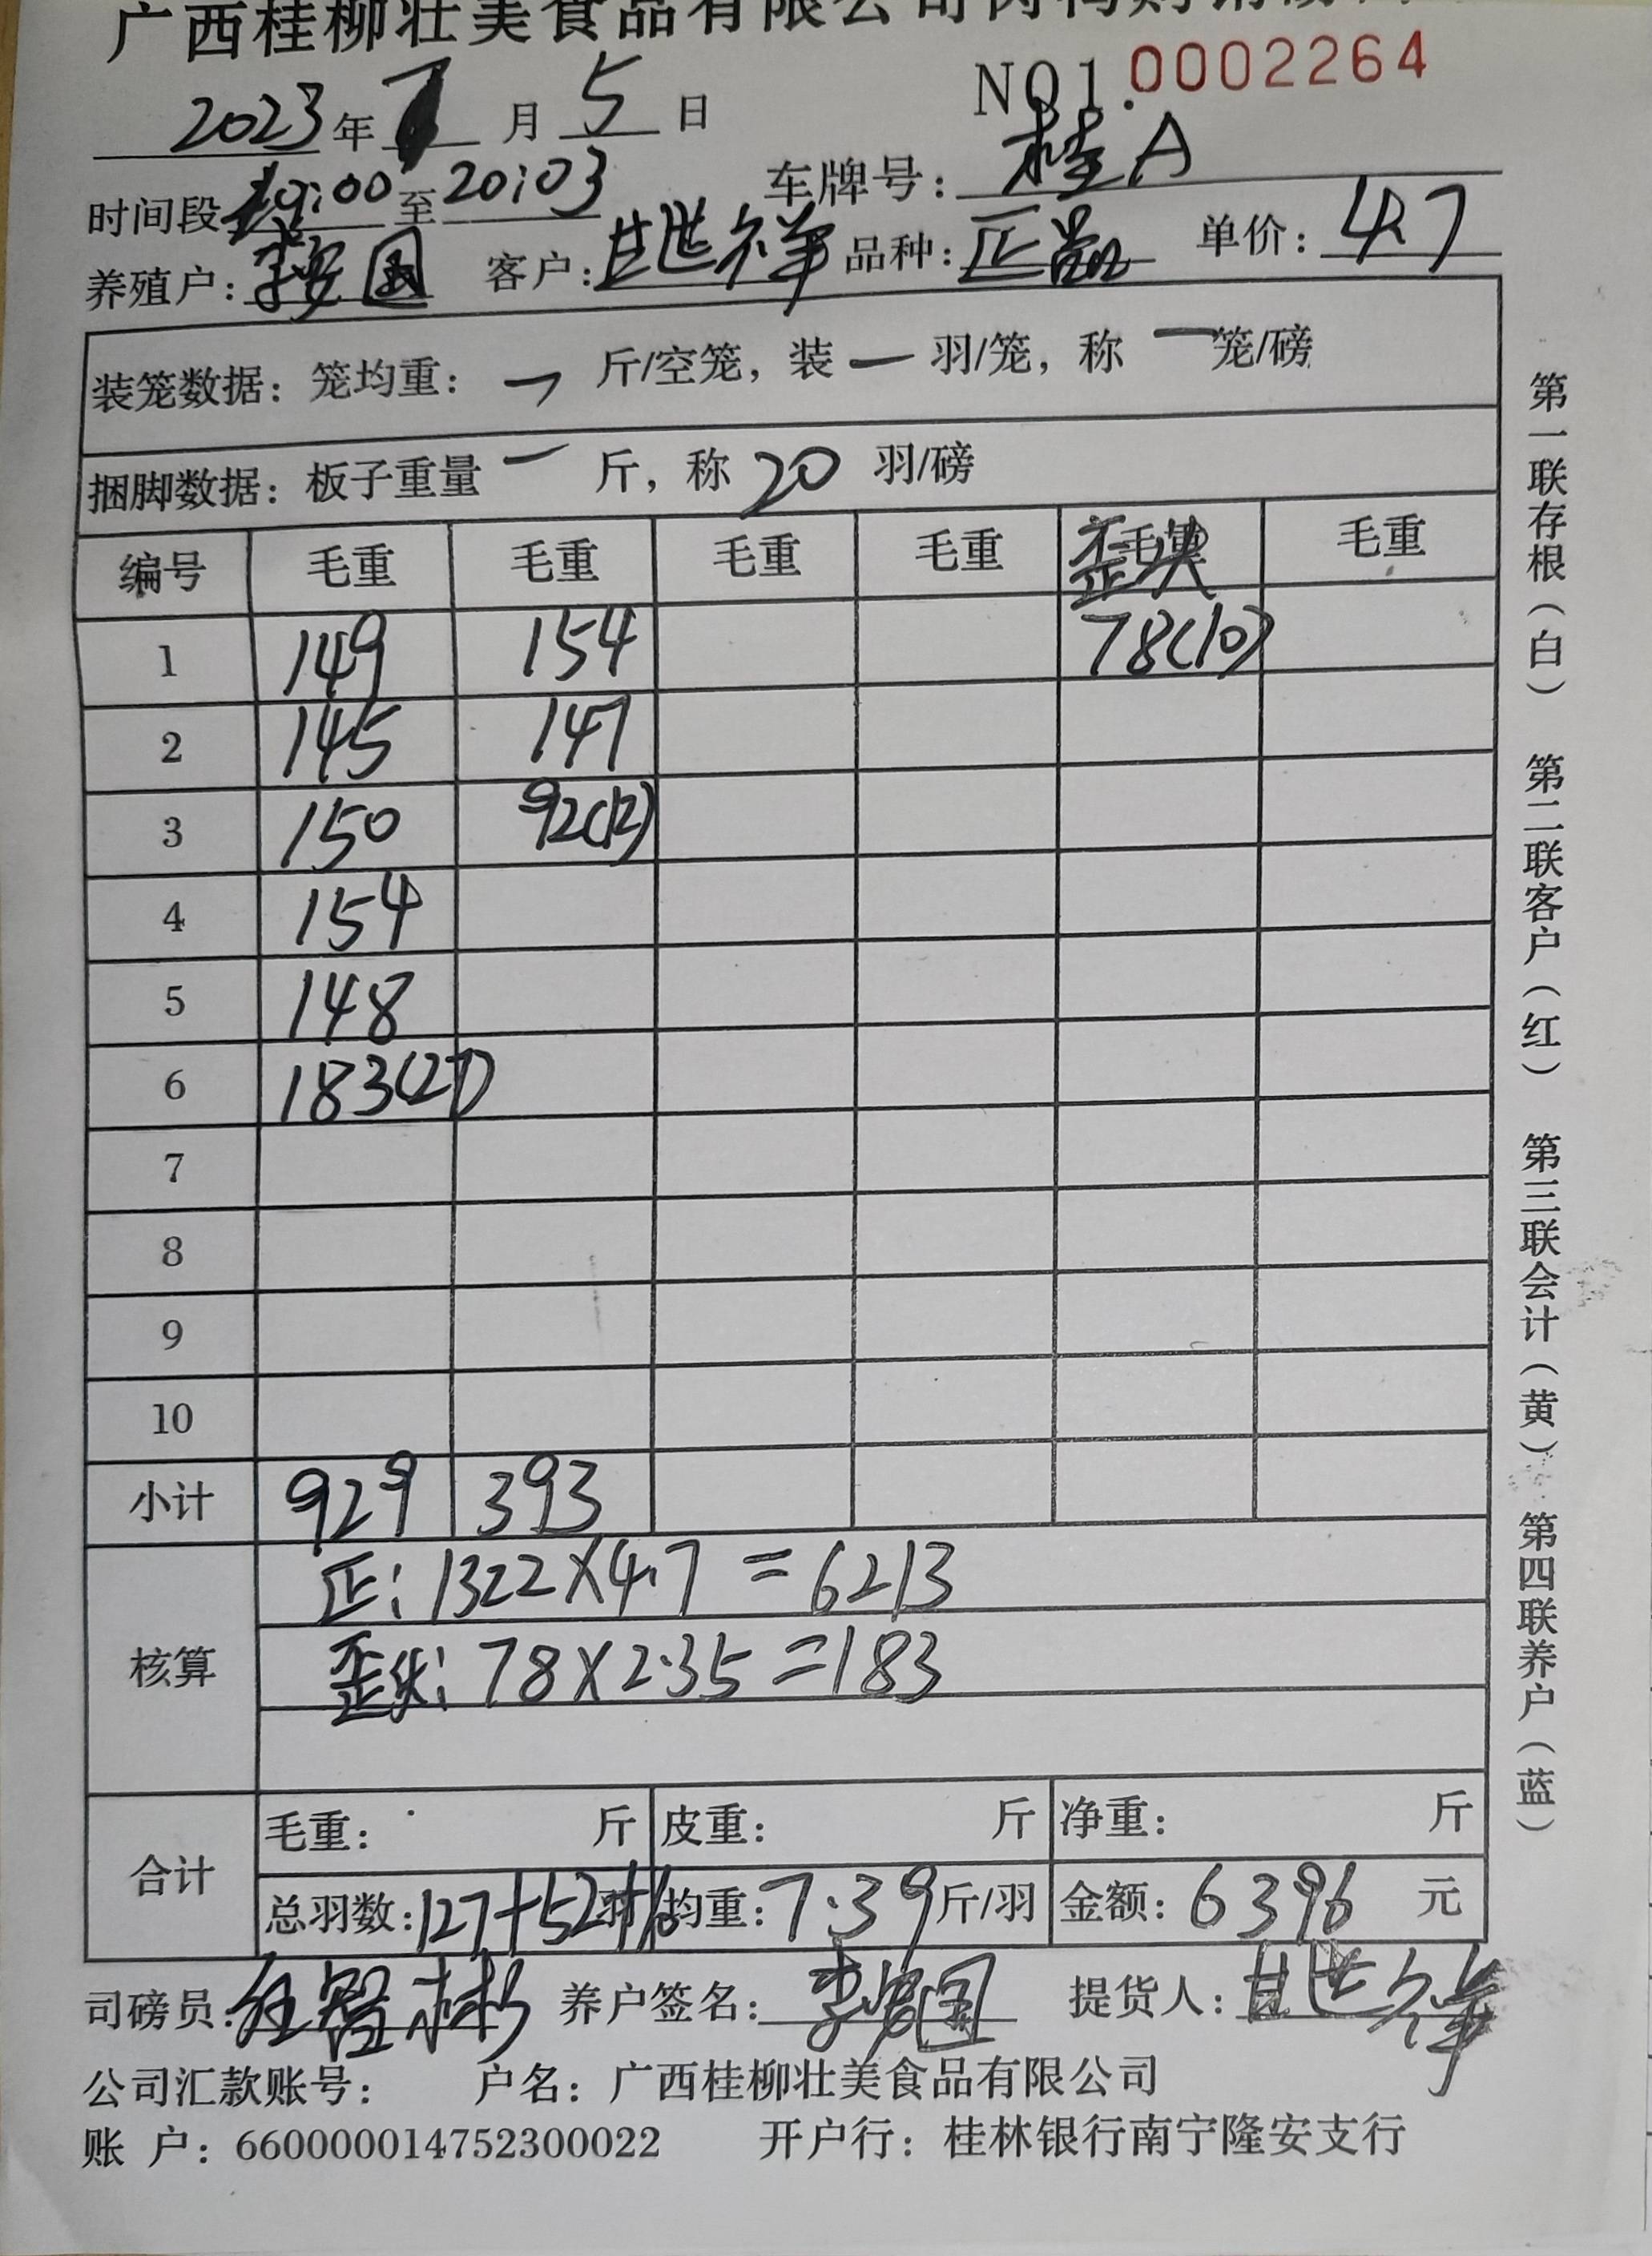 广西桂柳壮美食品有限公司肉鸭购销
NO1.0002264
2023年 月5日
时间段 19:00至20:03 车牌号：桂A
养殖户：李安国 客户：甘世祥 品种：正品 单价：4.7
装笼数据：笼均重：一 斤/空笼，装一羽/笼，称一笼/磅
捆脚数据：板子重量一斤，称20羽/磅
编号 毛重 毛重 毛重 毛重 毛重 毛重
1 149 154 78(10)
2 145 147
3 150 92(12)
4 154
5 148
6 183(27)
7
8
9
10
小计 929 393
正：1322×4.7=6213
核算 歪头：78×2.35=183
毛重： 斤 皮重： 斤 净重： 斤
合计
总羽数：127+52+10羽 均重：7.39斤/羽 金额：6396元
司磅员： 养户签名：李安国 提货人：甘世祥
公司汇款账号： 户名：广西桂柳壮美食品有限公司
账 户：660000014752300022 开户行：桂林银行南宁隆安支行
第一联存根（白） 第二联客户（红） 第三联会计（黄） 第四联养户（蓝）